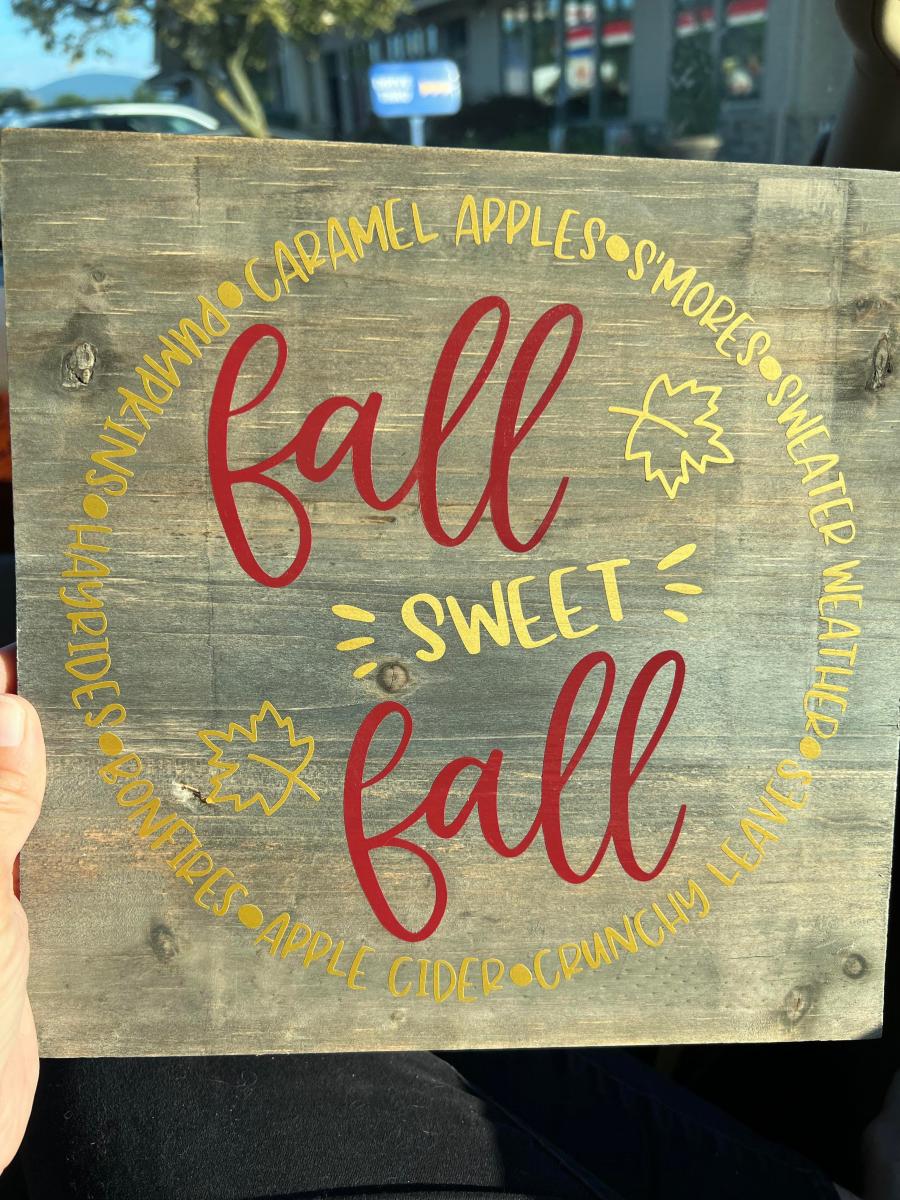 fall
SWEET
fall
CARAMEL APPLES•S'MORES•SWEATER WEATHER•CRUNCHY LEAVES•APPLE CIDER•BONFIRES•HAYRIDES•PUMPKINS•